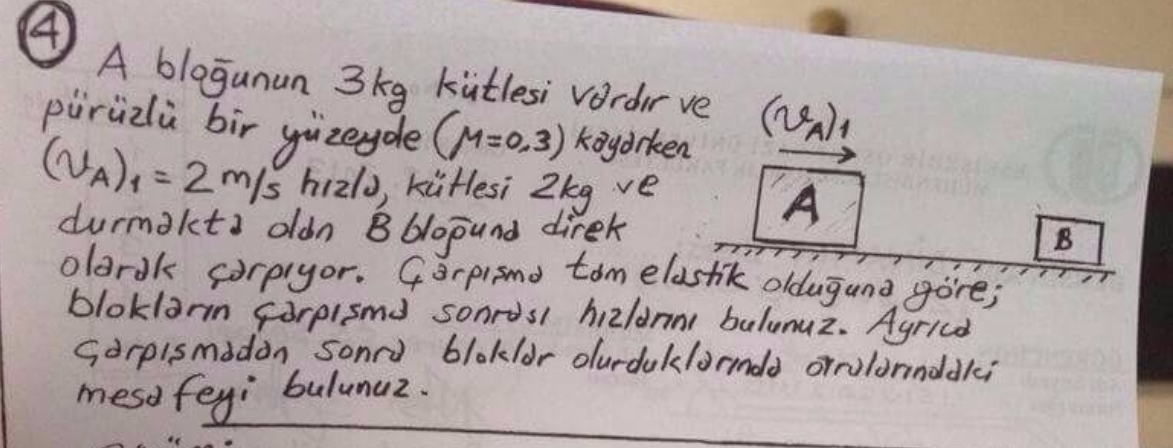 4
A bloğunun 3kg kütlesi vardır ve
pürüzlü bir yüzeyde (μ=0,3) kayarken
(υA)1 = 2 m/s hızla, kütlesi 2kg ve
durmakta olan B bloğuna direk
olarak çarpıyor. Çarpışma tam elastik olduğuna göre;
blokların çarpışma sonrası hızlarını bulunuz. Ayrıca
çarpışmadan sonra bloklar olurduklarında aralarındaki
mesafeyi bulunuz.
(υA)1
A
B